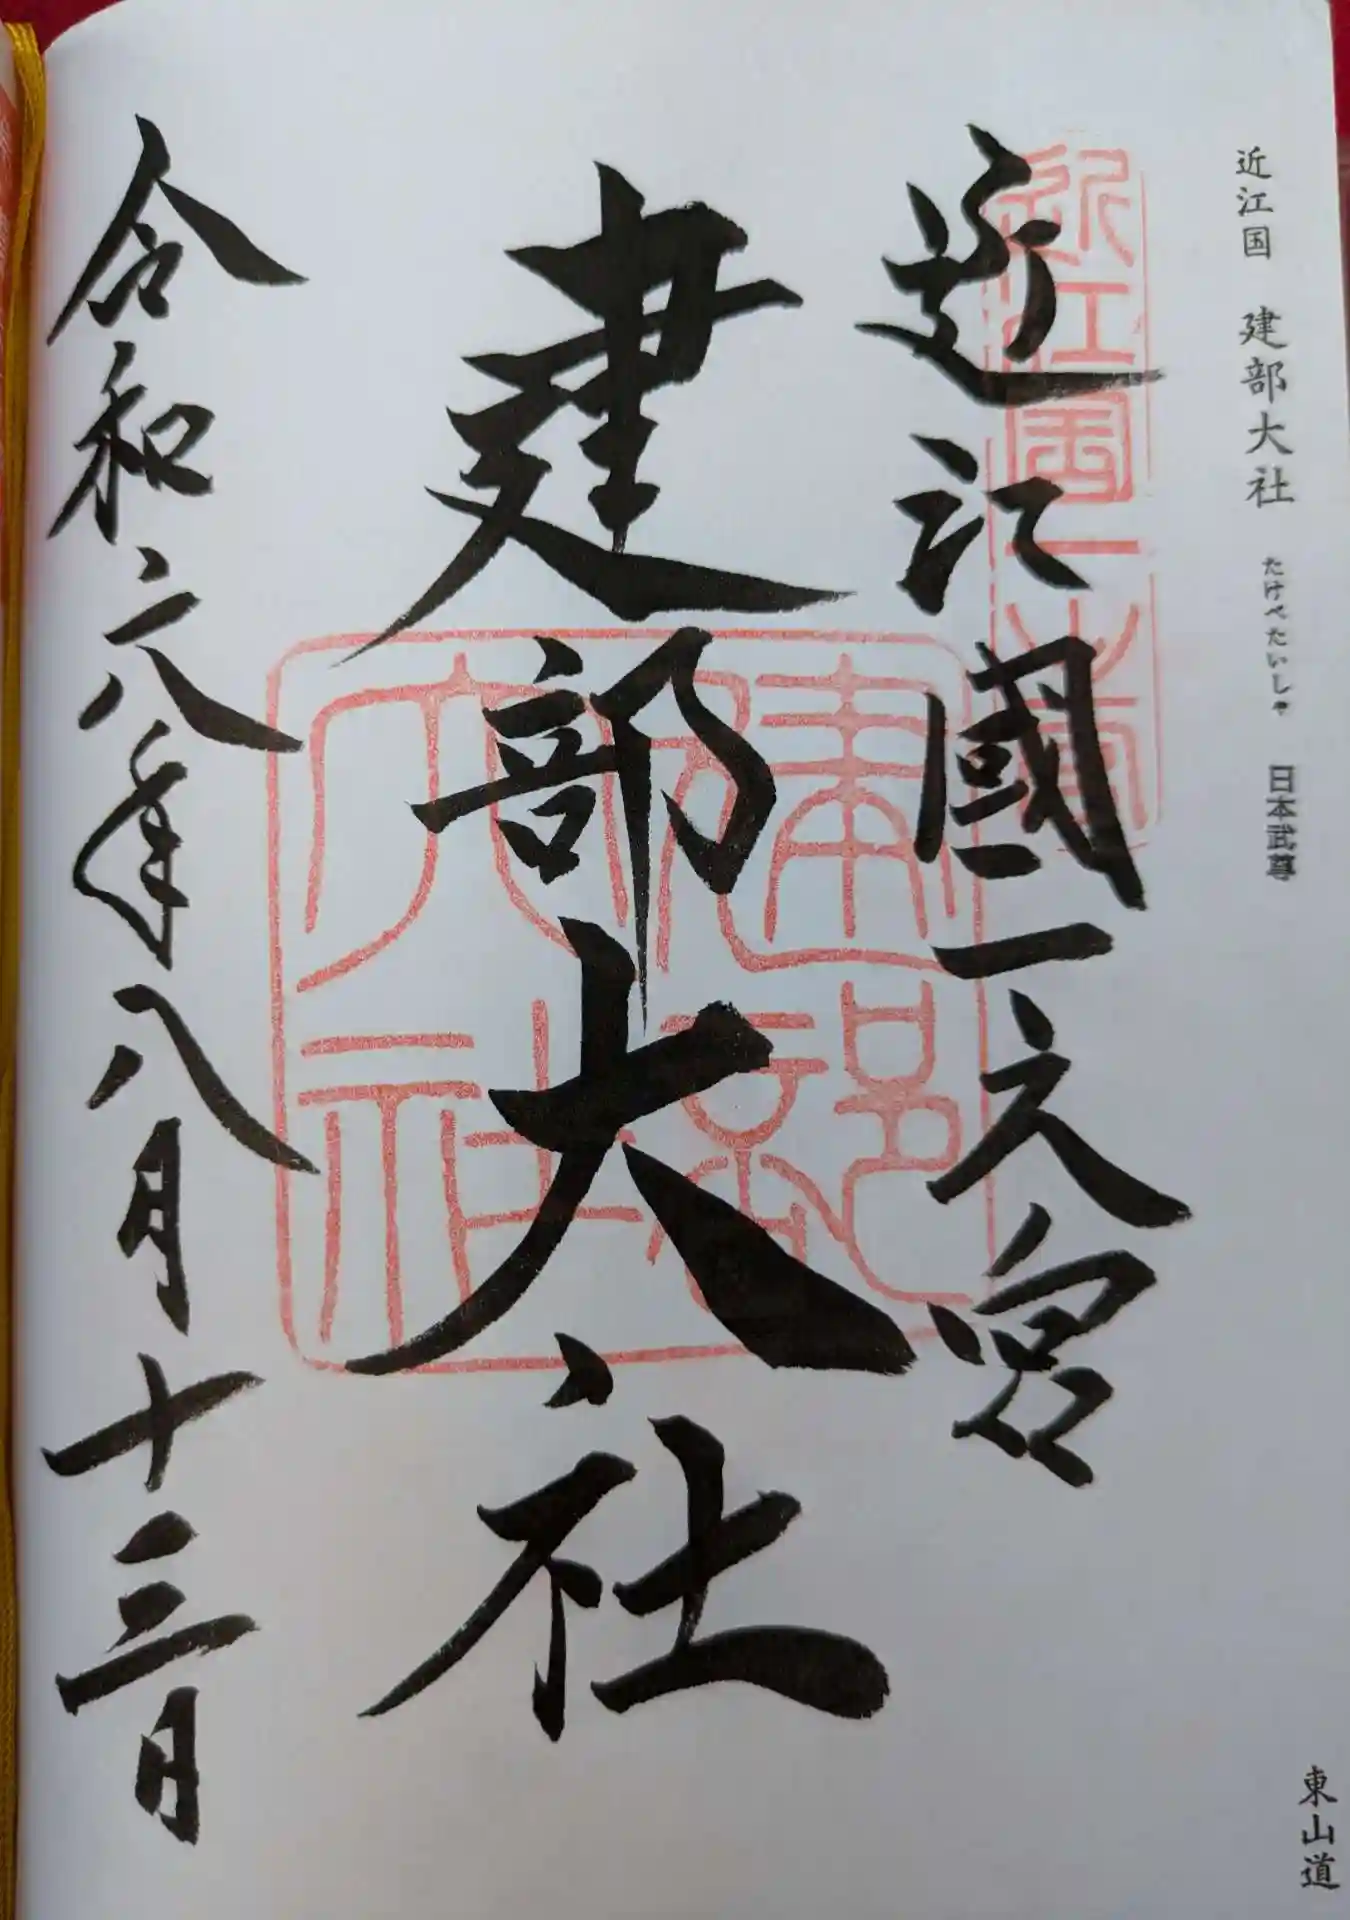 近江国 建部大社 たけべたいしゃ 日本武尊
東山道
近江國一之宮
近江國一之宮
建部大社
建部大社
令和六年八月十三日